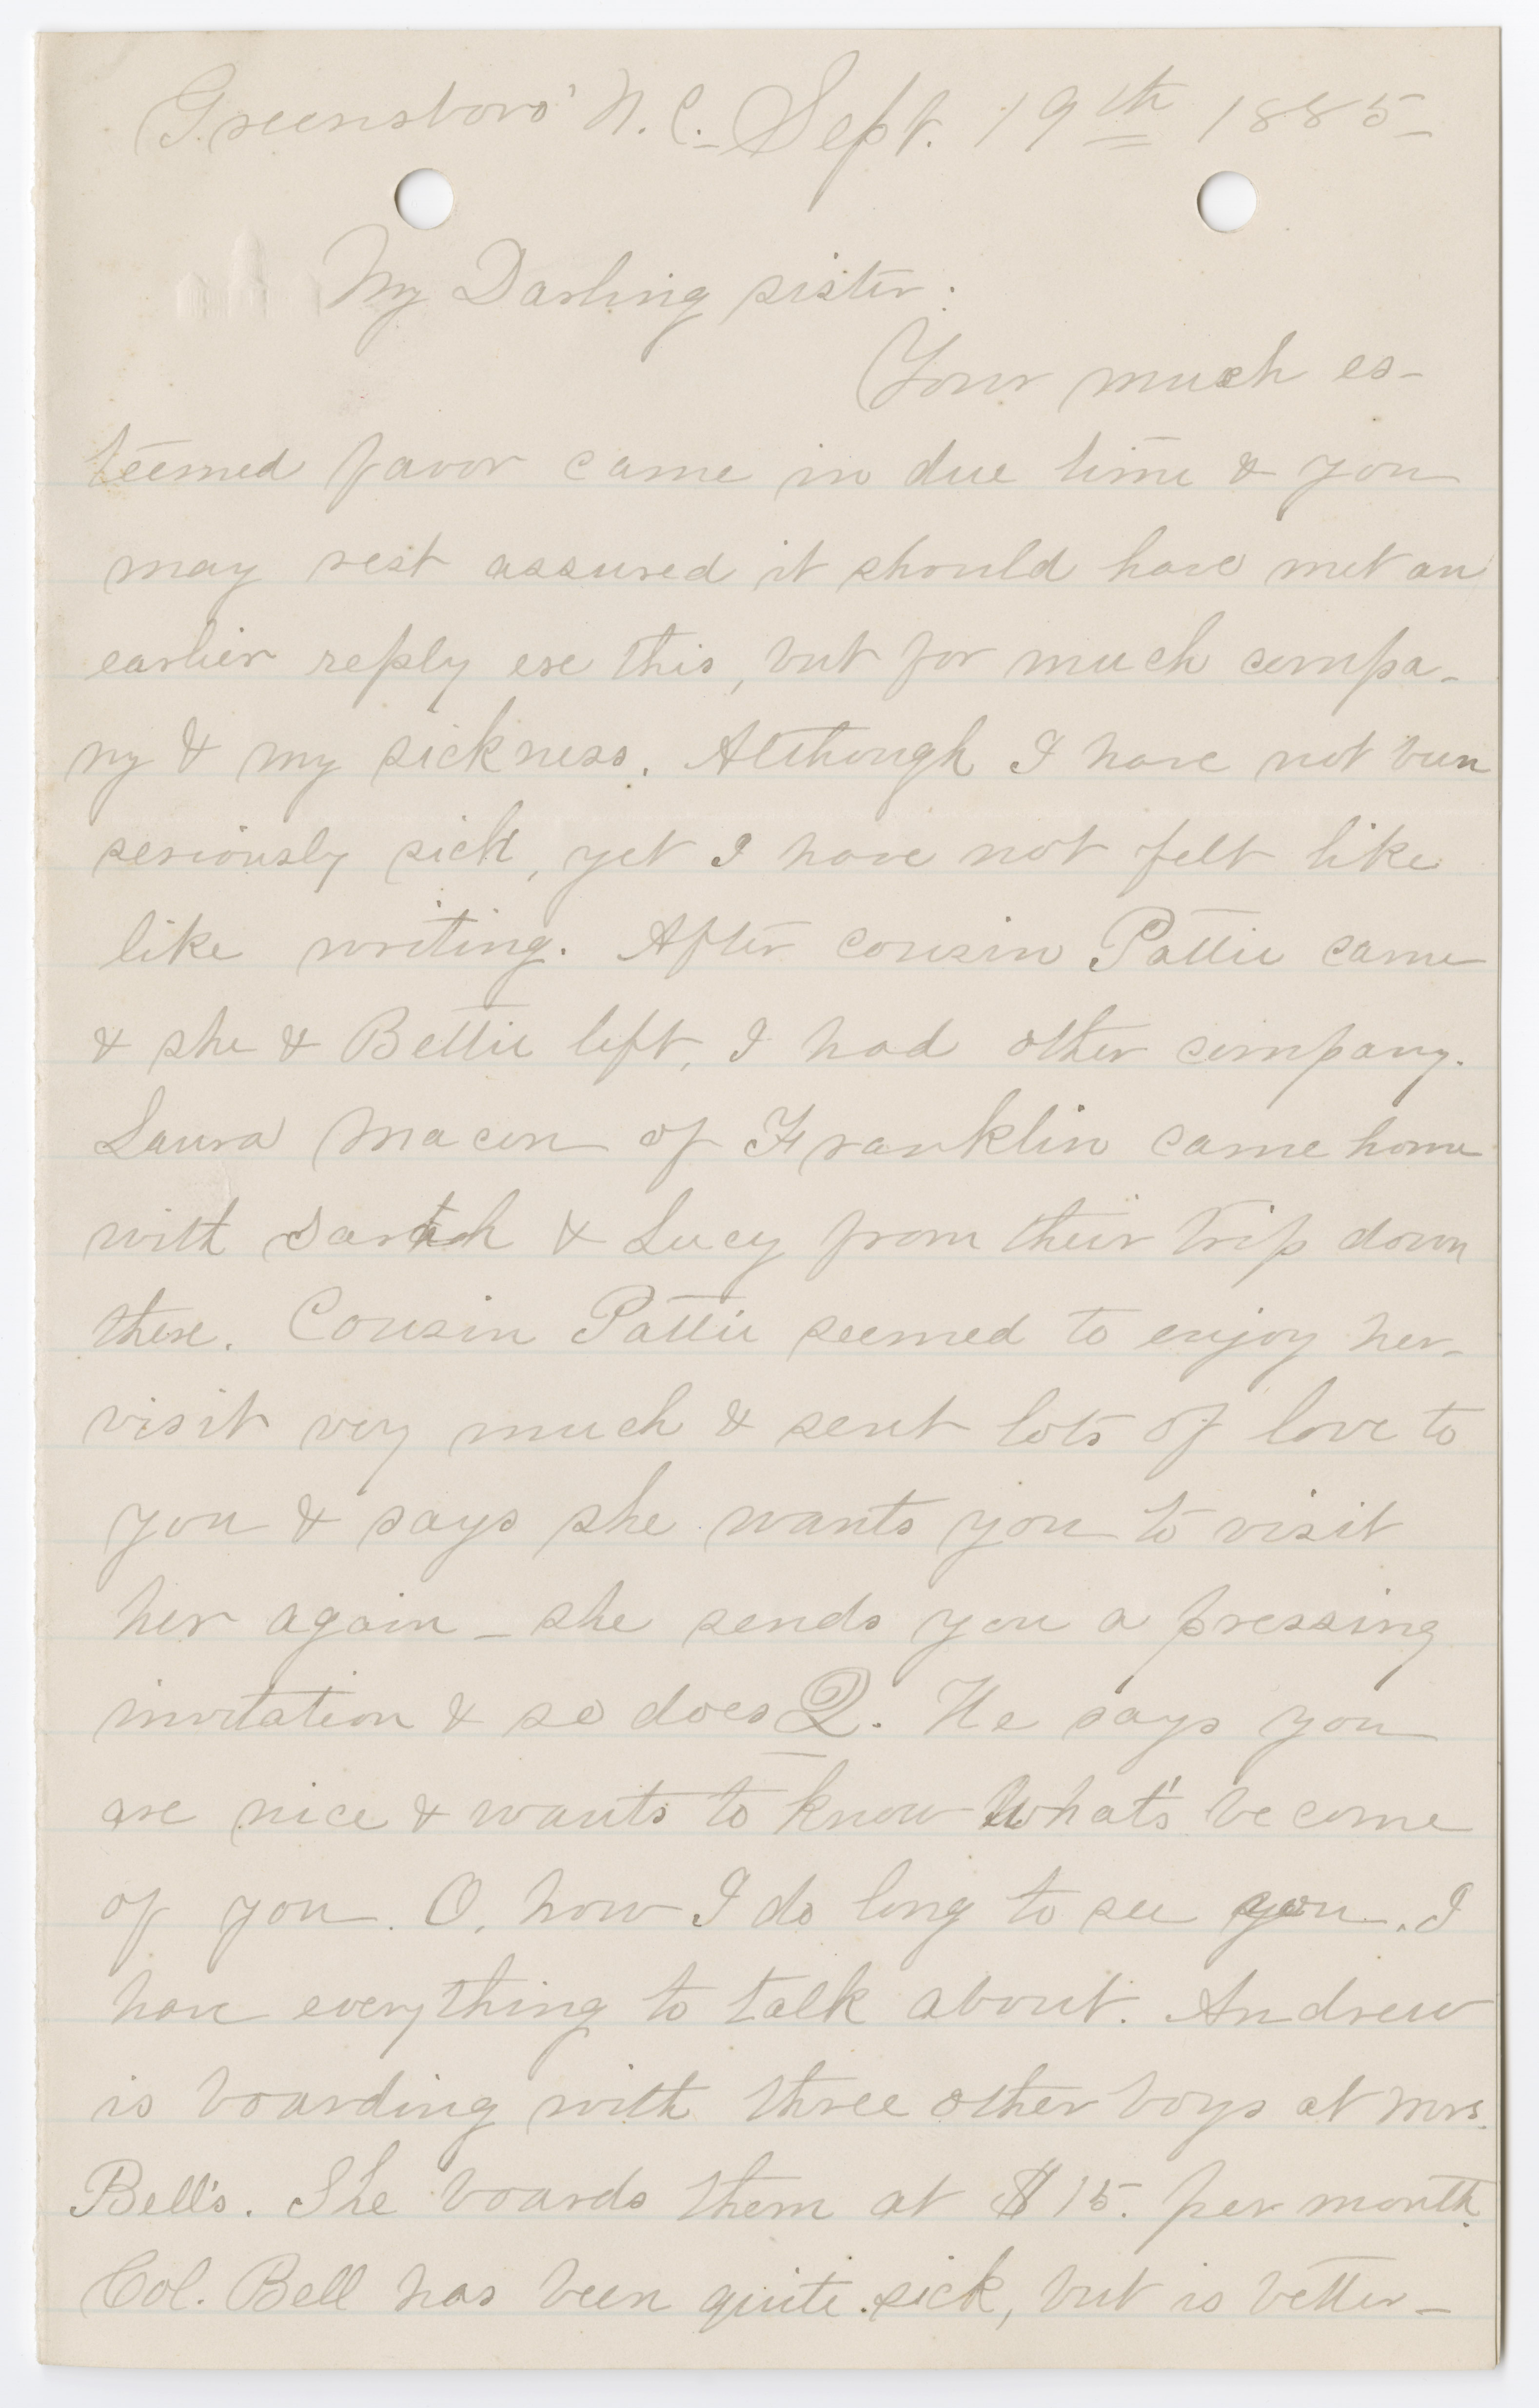 Greensboro' N.C. Sept. 19th 1885-
My Darling sister.
Your much es-
teemed favor came in due time & you
may rest assured it should have met an
earlier reply ere this, but for much compa-
ny & my sickness. Although I have not been
seriously sick, yet I have not felt like
like writing. After cousin Pattie came
& she & Bettie left, I had other company.
Laura Macon of Franklin came home
with Sarah & Lucy from their trip down
there. Cousin Pattie seemed to enjoy her
visit very much & sent lots of love to
you & says she wants you to visit
her again - she sends you a pressing
invitation & so does Q. He says you
are nice & wants to know what's become
of you. O, how I do long to see you. I
have everything to talk about. Andrew
is boarding with three other boys at Mrs.
Bell's. She boards them at $15. per month.
Col. Bell has been quite sick, but is better-